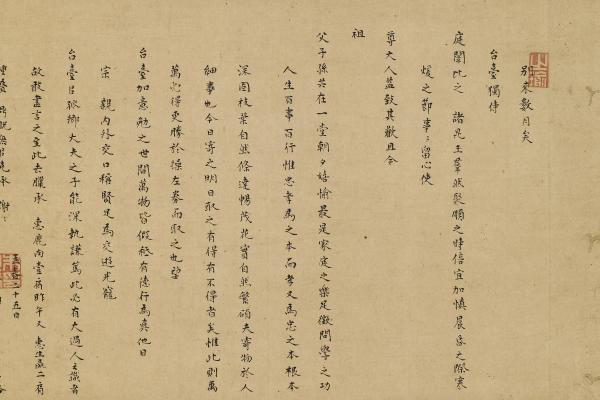 別來數月矣
台臺獨侍
庭闈比之 諸足下羣然聚順之時倍宜加慎晨昏之際寒
煖之節事事留心使
尊大人益致其歡且令
祖
父子孫共在一堂朝夕嬉愉最是家庭之樂足徵問學之功
人生百事百行惟忠孝為之本而孝又為忠之本根本
深固枝葉自然條達暢茂花實自然繁碩夫寄物於人
細事也今日寄之明日取之有得有不得者矣惟此則萬
萬必得更勝於操左券而取之也望
台臺加意勉之世間萬物皆假惟有德行為真他日
宗 親內外交口稱賢足為交遊光寵
台臺以狀鄉大夫之子能深執謙篤此必有大過人之識者
故敢盡言之至此去臘承 惠鹿肉臺蒨昨午又 惠生
五月二十五日